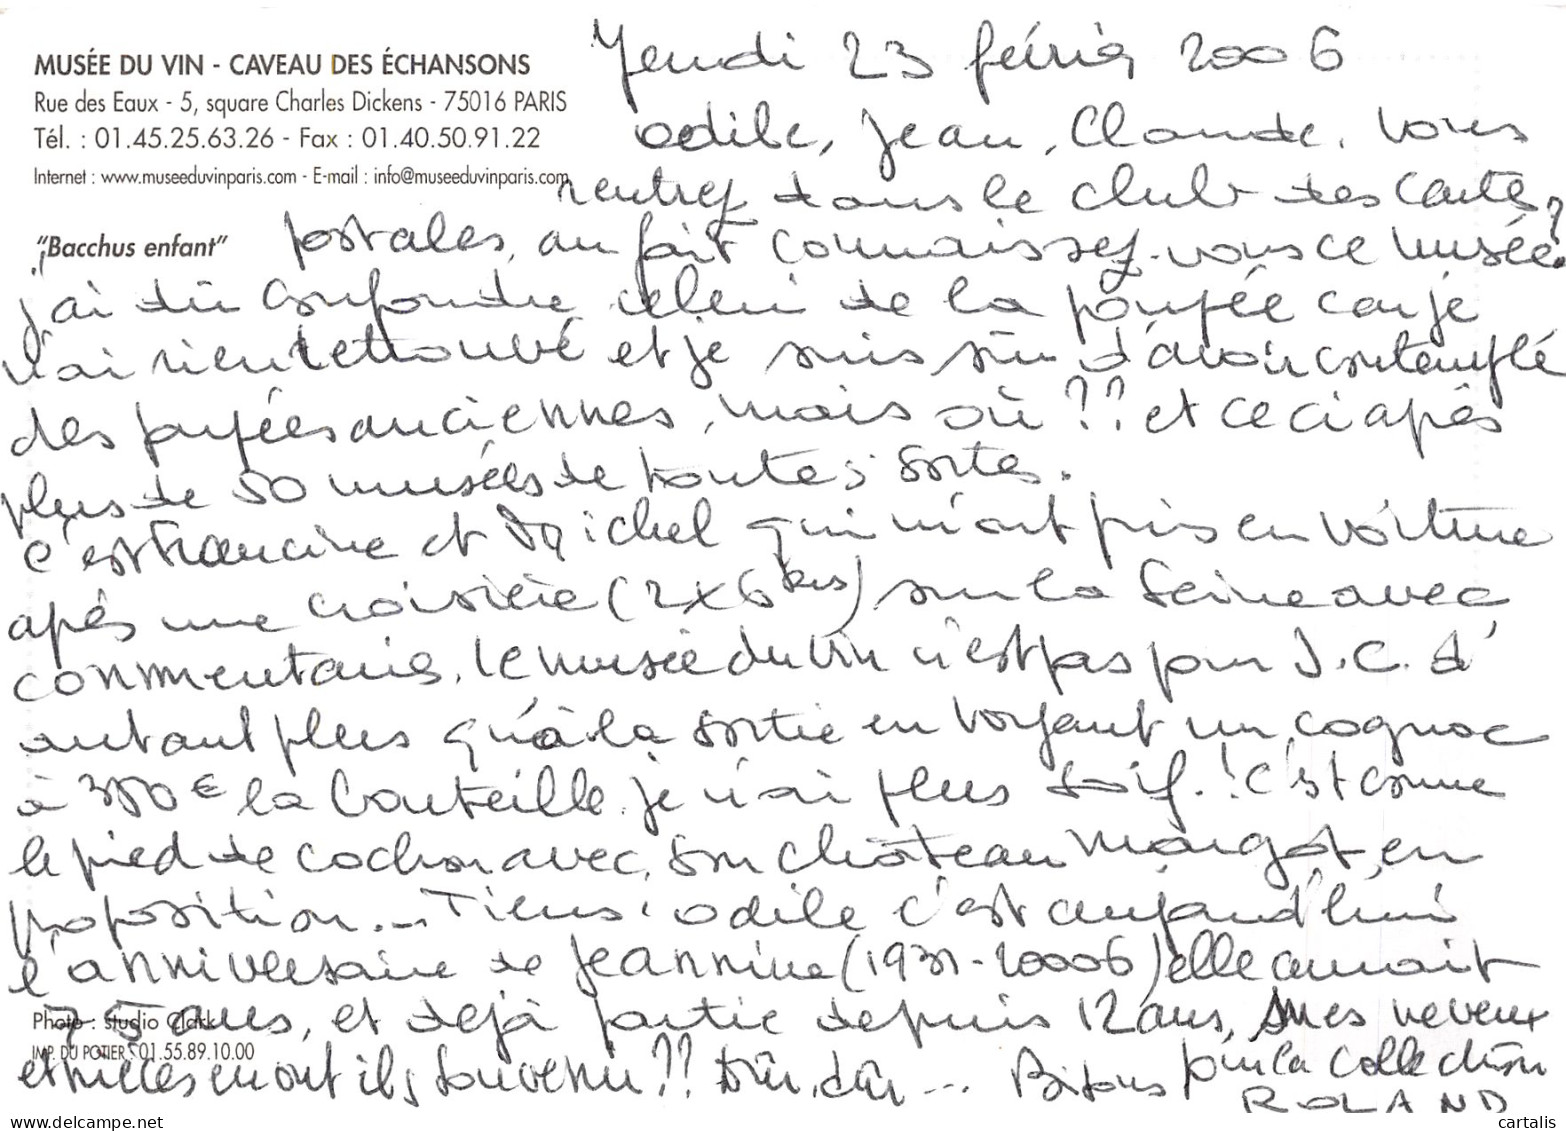 MUSÉE DU VIN - CAVEAU DES ÉCHANSONS
Rue des Eaux - 5, square Charles Dickens - 75016 PARIS
Tél. : 01.45.25.63.26 - Fax : 01.40.50.91.22
Internet : www.museeduvinparis.com - E-mail : info@museeduvinparis.com
"Bacchus enfant"
Jeudi 23 février 2006
Odile, Jean, Claude, vous
rentrez dans le club des cartes
postales, au fait connaissez-vous ce musée?
j'ai dû confondre celui de la poupée car je
n'ai rien retrouvé et je suis sûr d'avoir contemplé
des poupées anciennes, mais où ?? et ceci après
plus de 50 musées de toutes sortes.
C'est Francine et Michel qui m'ont pris en voiture
après une croisière (2x6 kms) sur la Seine avec
commentaires. Le musée du vin n'est pas pour J.C. d'
autant plus qu'à la sortie en voyant un cognac
à 350 € la bouteille je n'ai plus soif.! C'est comme
le pied de cochon avec son château Margot en
proposition... Tiens! Odile c'est aujourd'hui
l'anniversaire de Jeannine (1931-20006) elle aurait
75 ans, et déjà partie depuis 12 ans, mes neveux
et nièces en ont ils souvenu?? dûr, dûr ... Bisous pour la collection
ROLAND
Photo : studio Clakk
IMP. DU POTIER : 01.55.89.10.00
cartalis
www.delcampe.net